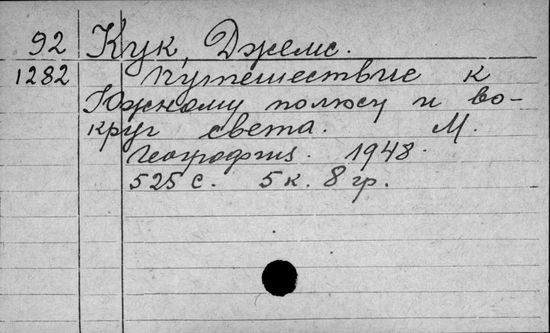 92 Кук, Джемс.
1282 Путешествие к
Южному полюсу и во-
круг света. М.
География. 1948.
525 с. 5 к. 8 гр.